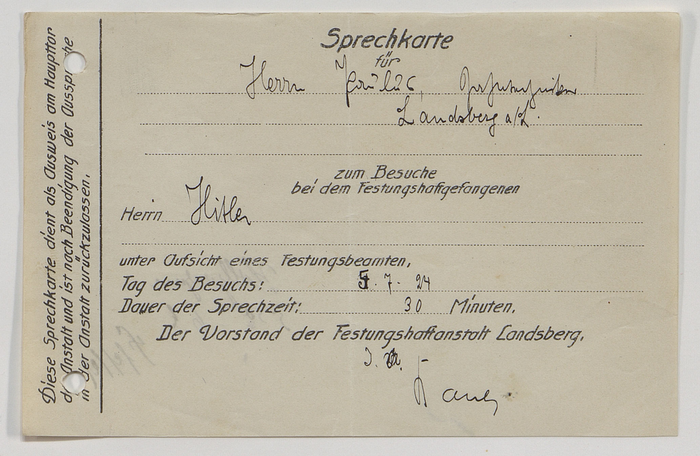 Diese Sprechkarte dient als Ausweis am Haupttor
der Anstalt und ist nach Beendigung der Aussprache
in der Anstalt zurückzulassen.
Sprechkarte
für
Herrn
Landsberg a/L.
zum Besuche
bei dem Festungshaftgefangenen
Herrn Hitler
unter Aufsicht eines Festungsbeamten,
Tag des Besuchs: 5. 7. 24
Dauer der Sprechzeit: 30 Minuten.
Der Vorstand der Festungshaftanstalt Landsberg.